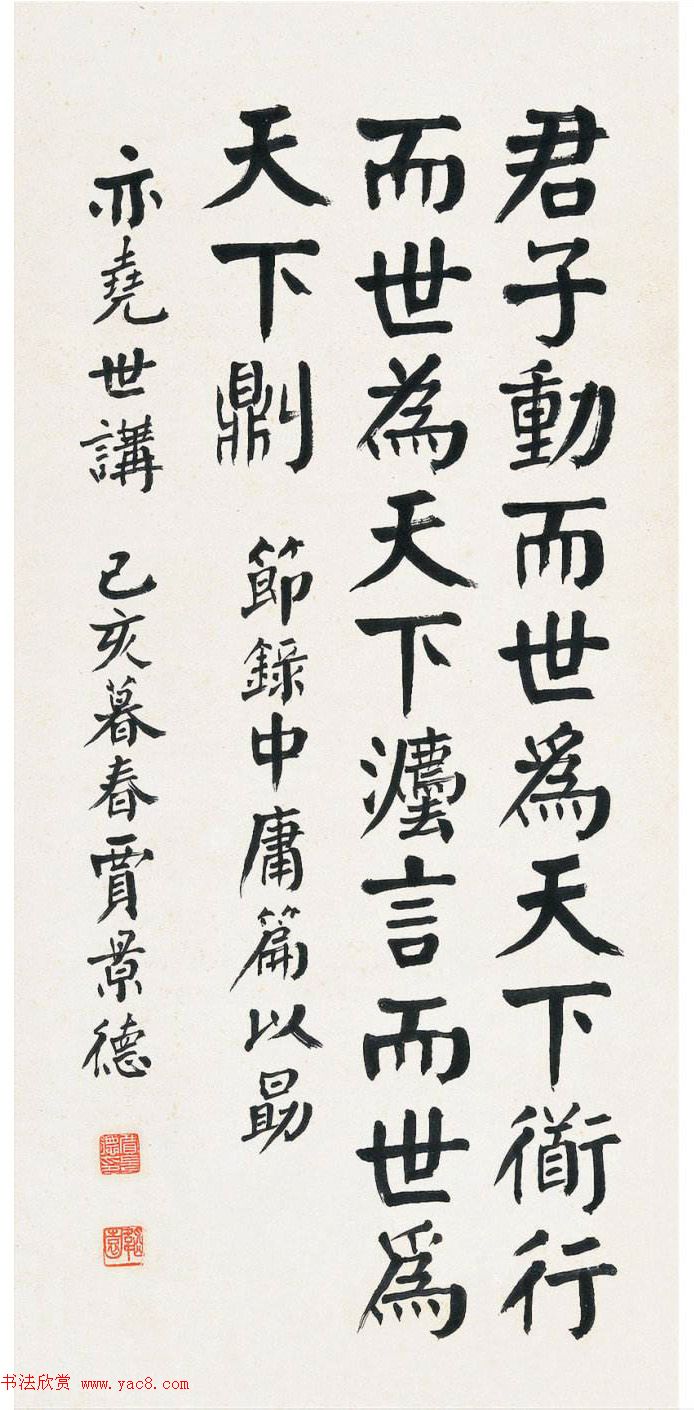 君子動而世為天下衜行
而世為天下灋言而世為
天下𠟭 節錄中庸篇以勗
亦堯世講 己亥暮春賈景德
賈景德印
韜園
书法欣赏 www.yac8.com